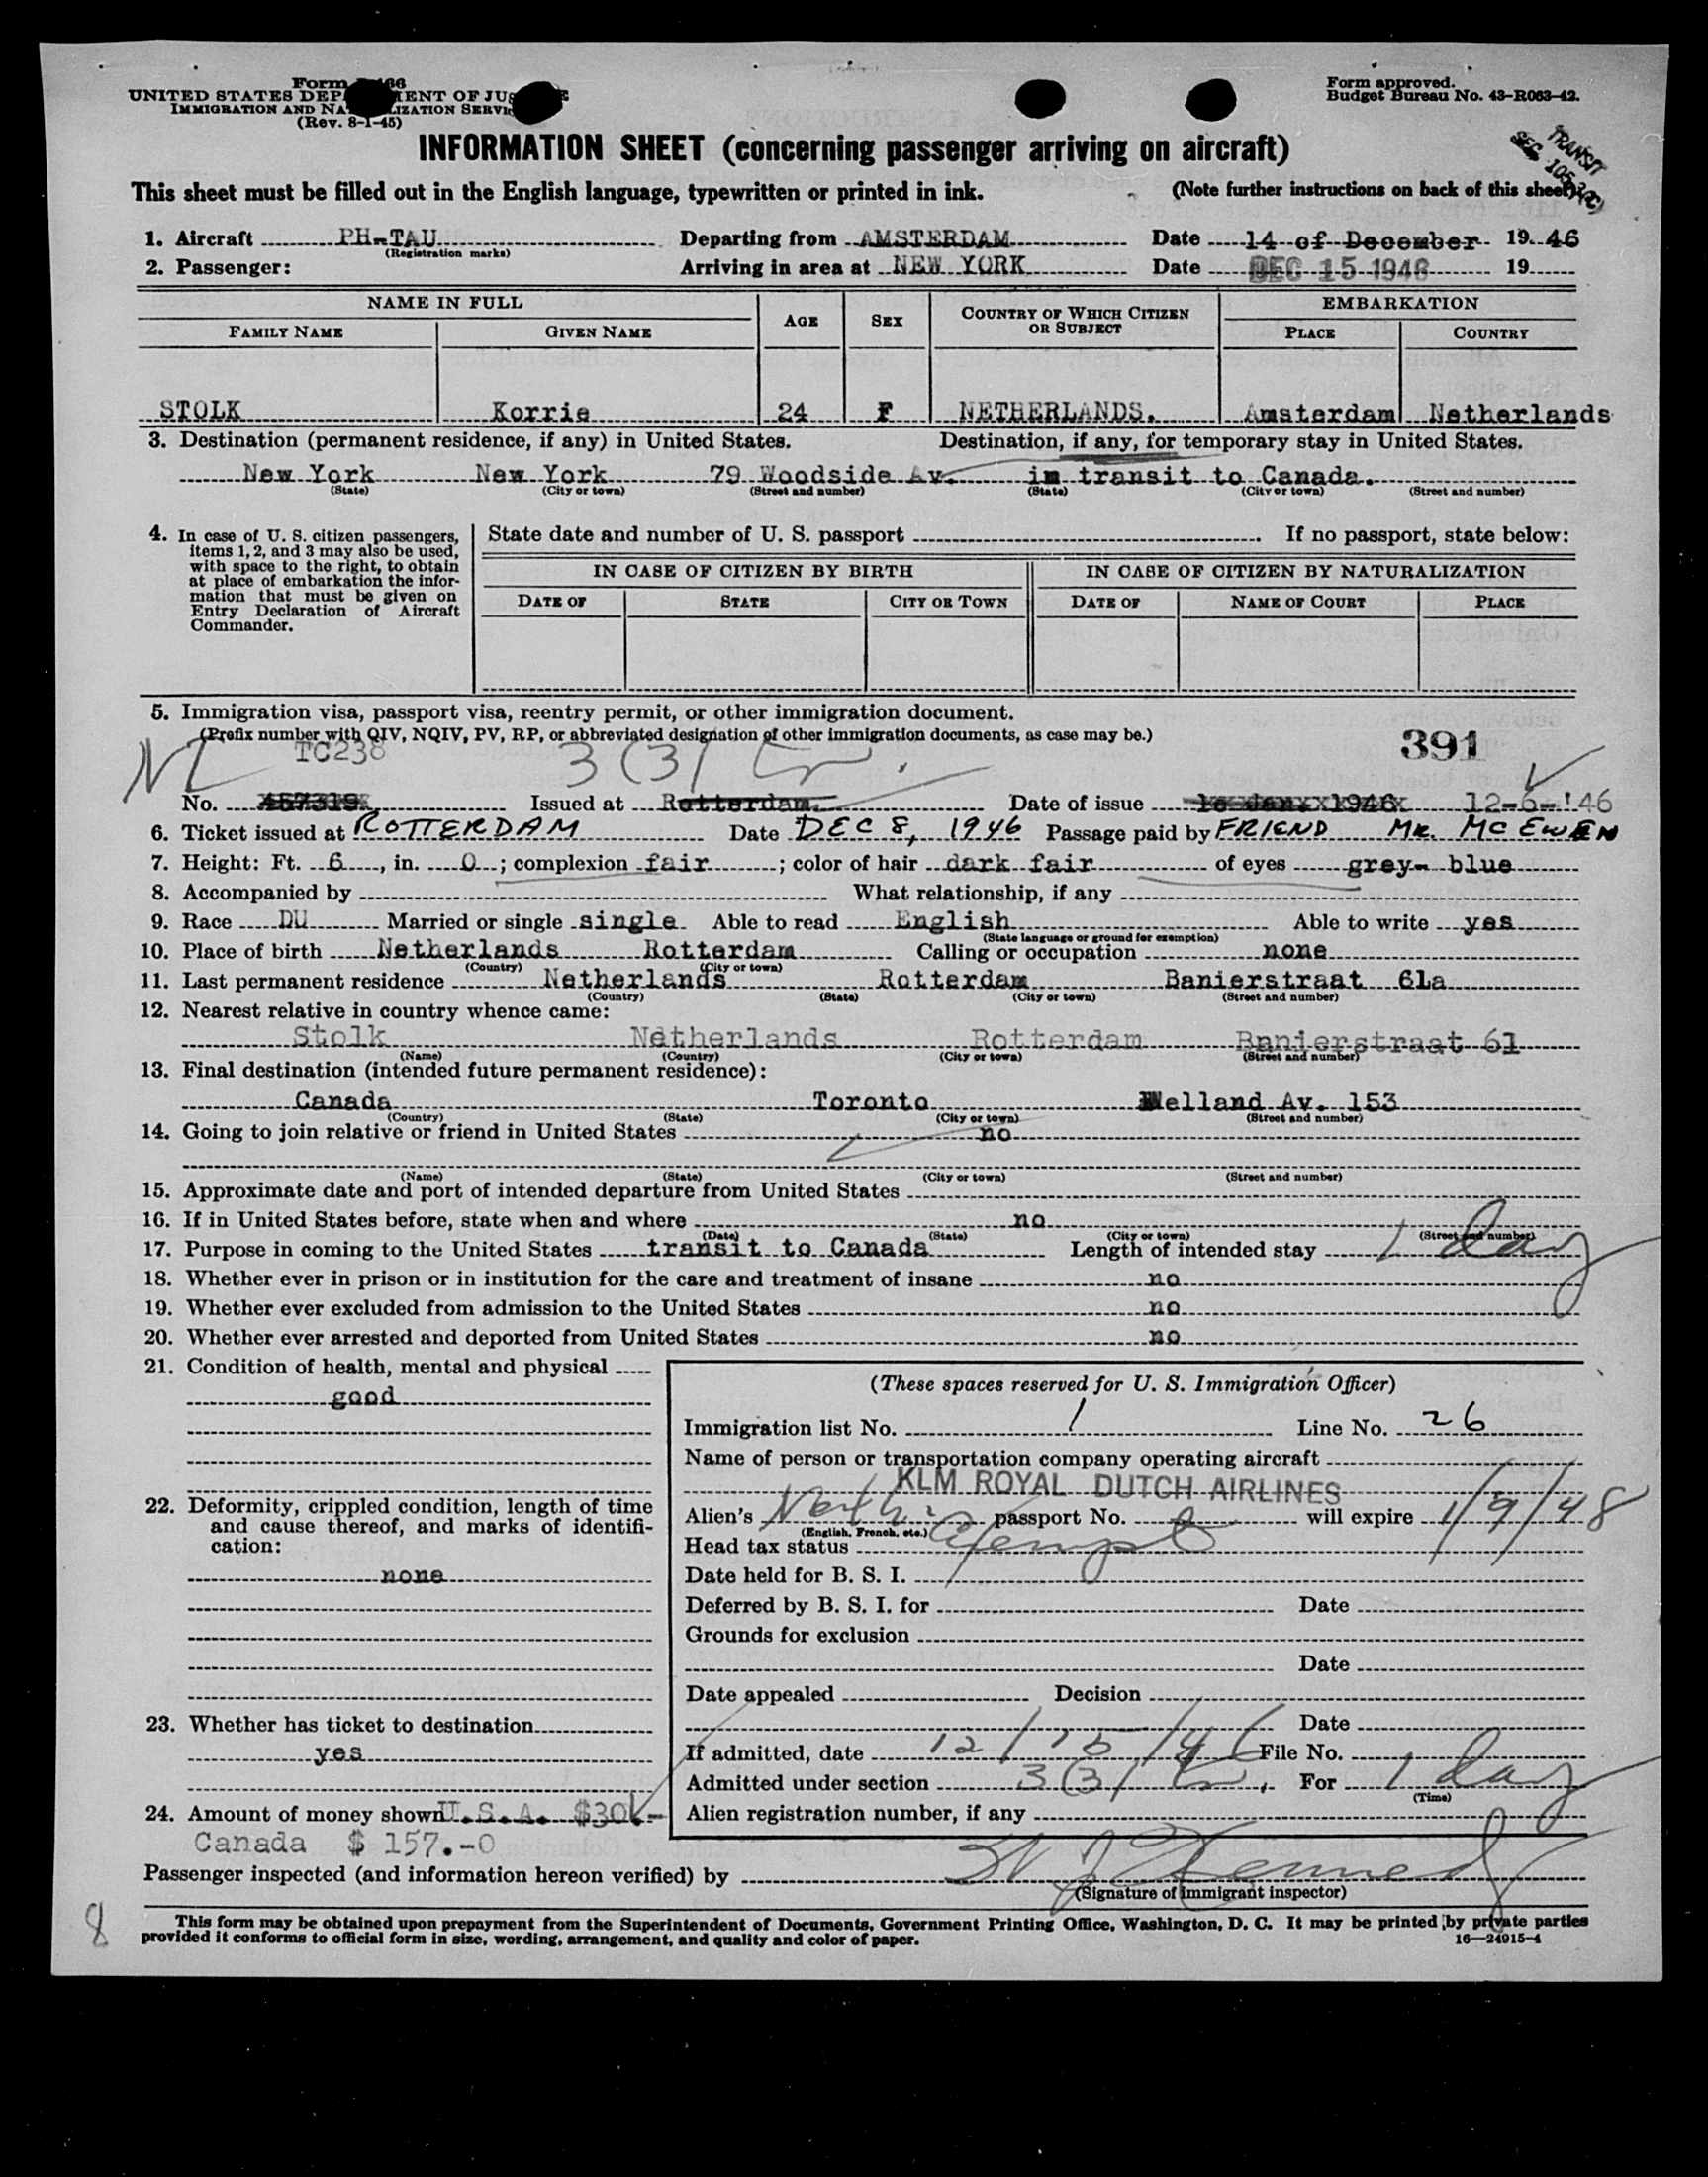 Form
UNITED STATES DEP ENT OF JUS
IMMIGRATION AND NA IZATION SERVI
(Rev. 8-1-45)
Form approved.
Budget Bureau No. 43-R063-42.
INFORMATION SHEET (concerning passenger arriving on aircraft)
TRANSIT
SEC. 105.3(C)
This sheet must be filled out in the English language, typewritten or printed in ink. (Note further instructions on back of this sheet)
1. Aircraft PH-TAU Departing from AMSTERDAM Date 14 of December 19 46
(Registration marks)
2. Passenger: Arriving in area at NEW YORK Date DEC 15 1946 19
NAME IN FULL AGE SEX COUNTRY OF WHICH CITIZEN OR SUBJECT EMBARKATION
FAMILY NAME GIVEN NAME PLACE COUNTRY
STOLK Korrie 24 F NETHERLANDS. Amsterdam Netherlands
3. Destination (permanent residence, if any) in United States. Destination, if any, for temporary stay in United States.
New York New York 79 Woodside Av. in transit to Canada.
(State) (City or town) (Street and number) (State) (City or town) (Street and number)
4. In case of U. S. citizen passengers, items 1, 2, and 3 may also be used, with space to the right, to obtain at place of embarkation the information that must be given on Entry Declaration of Aircraft Commander.
State date and number of U. S. passport . If no passport, state below:
IN CASE OF CITIZEN BY BIRTH IN CASE OF CITIZEN BY NATURALIZATION
DATE OF STATE CITY OR TOWN DATE OF NAME OF COURT PLACE
5. Immigration visa, passport visa, reentry permit, or other immigration document.
(Prefix number with QIV, NQIV, PV, RP, or abbreviated designation of other immigration documents, as case may be.)
TC238 3(3) 391
No. 457319 Issued at Rotterdam. Date of issue 16 Jan. 1946 12-6-'46
6. Ticket issued at ROTTERDAM Date DEC 8, 1946 Passage paid by FRIEND MR. MC EWEN
7. Height: Ft. 6, in. 0; complexion fair; color of hair dark fair of eyes grey- blue
8. Accompanied by What relationship, if any
9. Race DU Married or single single Able to read English Able to write yes
(State language or ground for exemption)
10. Place of birth Netherlands Rotterdam Calling or occupation none
(Country) (City or town)
11. Last permanent residence Netherlands Rotterdam Banierstraat 61a
(Country) (State) (City or town) (Street and number)
12. Nearest relative in country whence came:
Stolk Netherlands Rotterdam Banierstraat 61
(Name) (Country) (City or town) (Street and number)
13. Final destination (intended future permanent residence):
Canada Toronto Welland Av. 153
(Country) (State) (City or town) (Street and number)
14. Going to join relative or friend in United States no
(Name) (State) (City or town) (Street and number)
15. Approximate date and port of intended departure from United States
16. If in United States before, state when and where no
(Date) (State) (City or town) (Street and number)
17. Purpose in coming to the United States transit to Canada Length of intended stay 1 day
18. Whether ever in prison or in institution for the care and treatment of insane no
19. Whether ever excluded from admission to the United States no
20. Whether ever arrested and deported from United States no
21. Condition of health, mental and physical
good
22. Deformity, crippled condition, length of time and cause thereof, and marks of identification:
none
23. Whether has ticket to destination
yes
24. Amount of money shown U.S.A. $30.-
Canada $ 157.-0
(These spaces reserved for U. S. Immigration Officer)
Immigration list No. 1 Line No. 26
Name of person or transportation company operating aircraft
KLM ROYAL DUTCH AIRLINES
Alien's passport No. will expire 1/9/48
(English, French, etc.)
Head tax status exempt
Date held for B. S. I.
Deferred by B. S. I. for Date
Grounds for exclusion
Date
Date appealed Decision
Date
If admitted, date 12/15/46 File No.
Admitted under section 3(3) For 1 day
(Time)
Alien registration number, if any
Passenger inspected (and information hereon verified) by W J Kennedy
(Signature of immigrant inspector)
8
This form may be obtained upon prepayment from the Superintendent of Documents, Government Printing Office, Washington, D. C. It may be printed by private parties
provided it conforms to official form in size, wording, arrangement, and quality and color of paper. 16—24915-4